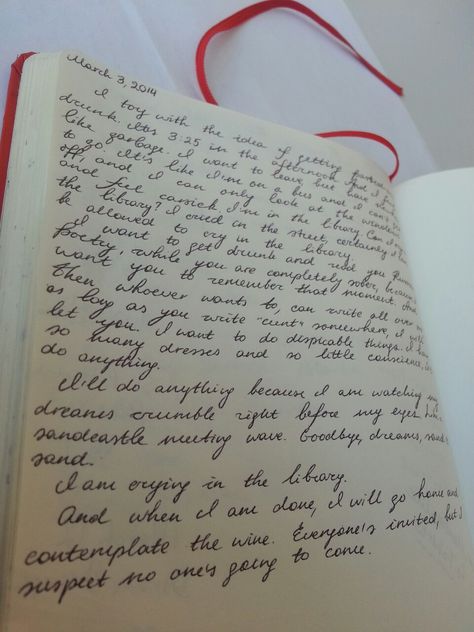 March 3, 2014
I toy with the idea of getting
drunk. It's 3:25 in the afternoon and I
like garbage. I want to leave but have
to go. It's like I'm on a bus and I can't
off, and I can only look at the
and feel carsick. I'm in the library. Can I
the library? I cried in the street, certainly I
be allowed to cry in the library.
I want to get drunk and read you
Poetry, while you are completely sober, because
want you to remember that moment. And
then, whoever wants to, can write all over
as long as you write "cunt" somewhere, I will
let you. I want to do despicable things. I have
so many dresses and so little conscience,
do anything.
I'll do anything because I am watching my
dreams crumble right before my eyes
sandcastle meeting wave. Goodbye, dreams,
sand.
I am crying in the library.
And when I am done, I will go home and
contemplate the wine. Everyone's invited, but I
suspect no one's going to come.